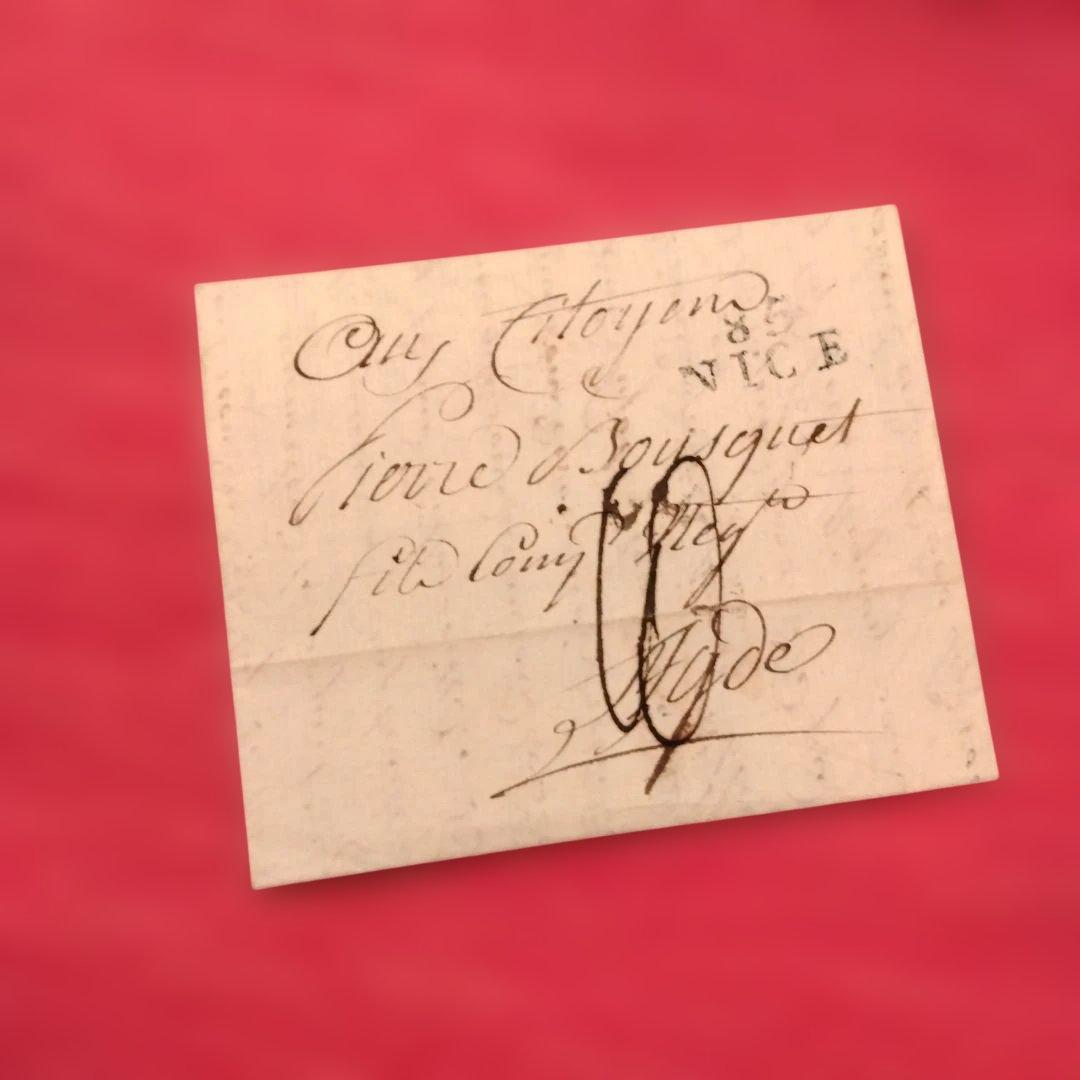 Aux Citoyens
85
NICE
Pierre Bousquet
fils Compe Negts
Agde